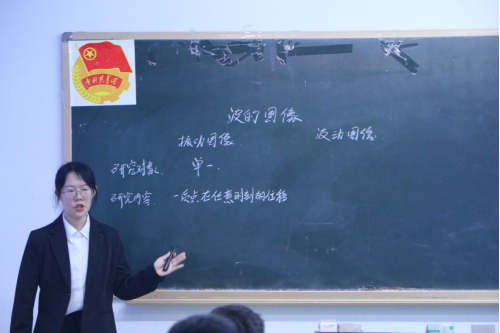 中国共青团
波的图像
振动图像 波动图像
研究对象 单一
研究内容 一质点在任意时刻的位移